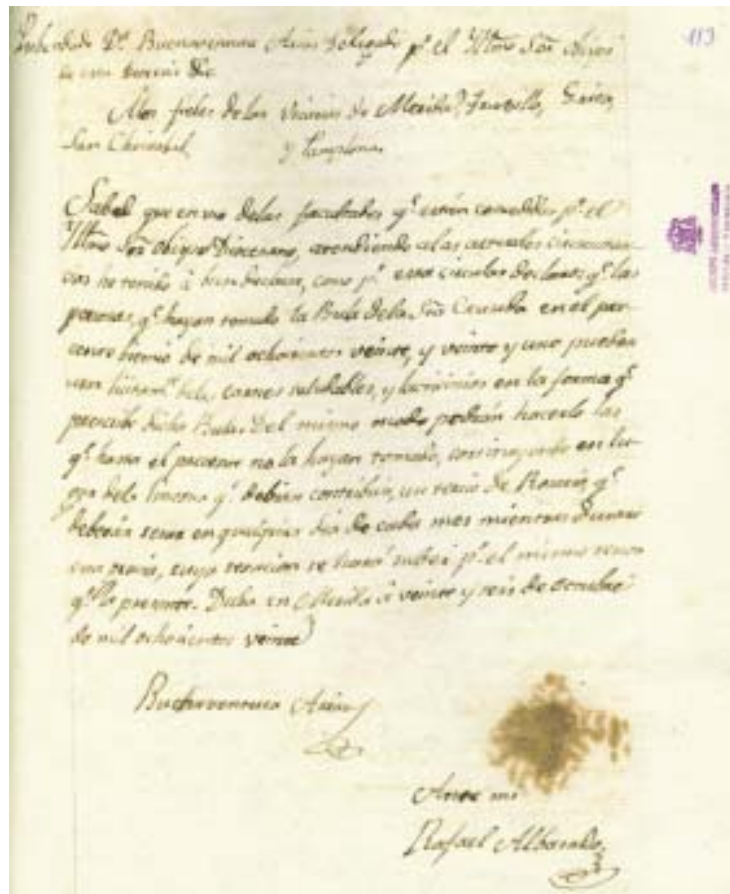 113
D.n Buenaventura Arias Delegado p.r el Yltmo Sor obispo
de esta
A los fieles de las Vicarias de Merida, Truxillo,
San Christobal, y Pamplona
Sabed que en uso de las facultades q.e estan concedidas p.r el
Yltmo Sor Obispo Diocesano, atendiendo a las actuales circunstan-
cias he tenido á bien declarar, como p.r esta circular declaramos q.e las
personas, q.e hayan tomado la Bula de la Sta Cruzada en el pre-
sente bienio de mil ochocientos veinte, y veinte y uno puedan
usar de carnes saludables, y lacticinios en la forma q.e
prescribe dicha Bula. Del mismo modo podrán hacerlo las
q.e hasta el presente no la hayan tomado, en lu-
gar de la limosna q.e debian contribuir, un tercio de Rosario, q.e
deberán rezar en qualquier dia de cada mes mientras durare
esta gracia, cuya se hará saber p.r el mismo tenor
q.e la presente. Dada en Merida á veinte y seis de octubre
de mil ochocientos veinte
Buenaventura Arias
Ante mi
Rafael Albarado